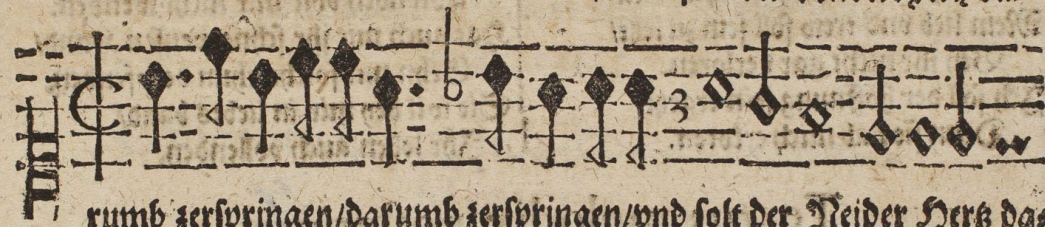 rumb zerspringen/darumb zerspringen/vnd solt der Neider Hertz das